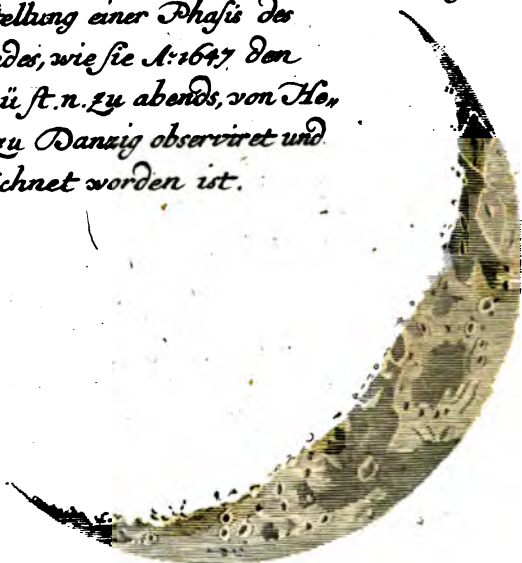 tellung einer Phasis des
ndes, wie sie A:1647 den
st.n. zu abends, von He„
zu Danzig observiret und
ichnet worden ist.